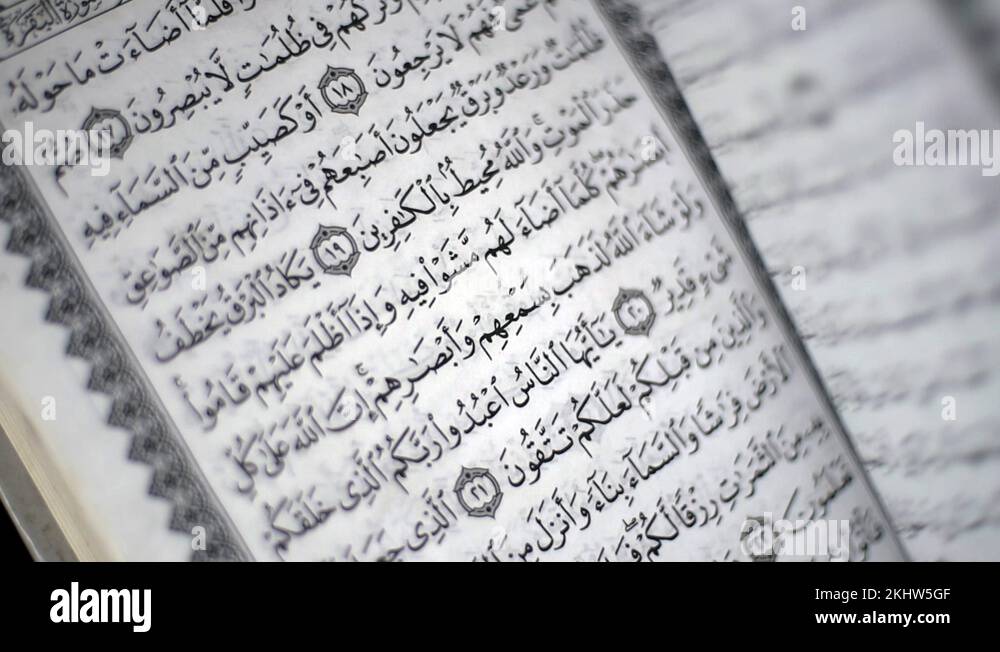 سُورَةُ الْبَقَرَةِ
فَلَمَّا أَضَاءَتْ مَا حَوْلَهُ
وَتَرَكَهُمْ فِى ظُلُمَٰتٍ لَّا يُبْصِرُونَ ١٧ صُمٌّ
عُمْىٌ فَهُمْ لَا يَرْجِعُونَ ١٨ أَوْ كَصَيِّبٍ مِّنَ ٱلسَّمَآءِ فِيهِ
ظُلُمَٰتٌ وَرَعْدٌ وَبَرْقٌ يَجْعَلُونَ أَصَٰبِعَهُمْ فِىٓ ءَاذَانِهِم مِّنَ ٱلصَّوَٰعِقِ
حَذَرَ ٱلْمَوْتِ وَٱللَّهُ مُحِيطٌۢ بِٱلْكَٰفِرِينَ ١٩ يَكَادُ ٱلْبَرْقُ يَخْطَفُ
أَبْصَٰرَهُمْ كُلَّمَآ أَضَآءَ لَهُم مَّشَوْا۟ فِيهِ وَإِذَآ أَظْلَمَ عَلَيْهِمْ قَامُوا۟
وَلَوْ شَآءَ ٱللَّهُ لَذَهَبَ بِسَمْعِهِمْ وَأَبْصَٰرِهِمْ إِنَّ ٱللَّهَ عَلَىٰ كُلِّ
شَىْءٍ قَدِيرٌ ٢٠ يَٰٓأَيُّهَا ٱلنَّاسُ ٱعْبُدُوا۟ رَبَّكُمُ ٱلَّذِى خَلَقَكُمْ
وَٱلَّذِينَ مِن قَبْلِكُمْ لَعَلَّكُمْ تَتَّقُونَ ٢١ ٱلَّذِى
ٱلْأَرْضَ فِرَٰشًا وَٱلسَّمَآءَ بِنَآءً وَأَنزَلَ مِنَ
بِهِۦ مِنَ ٱلثَّمَرَٰتِ رِزْقًا لَّكُمْ
تَعْلَمُونَ
alamy
Image ID: 2KHW5GF
www.alamy.com